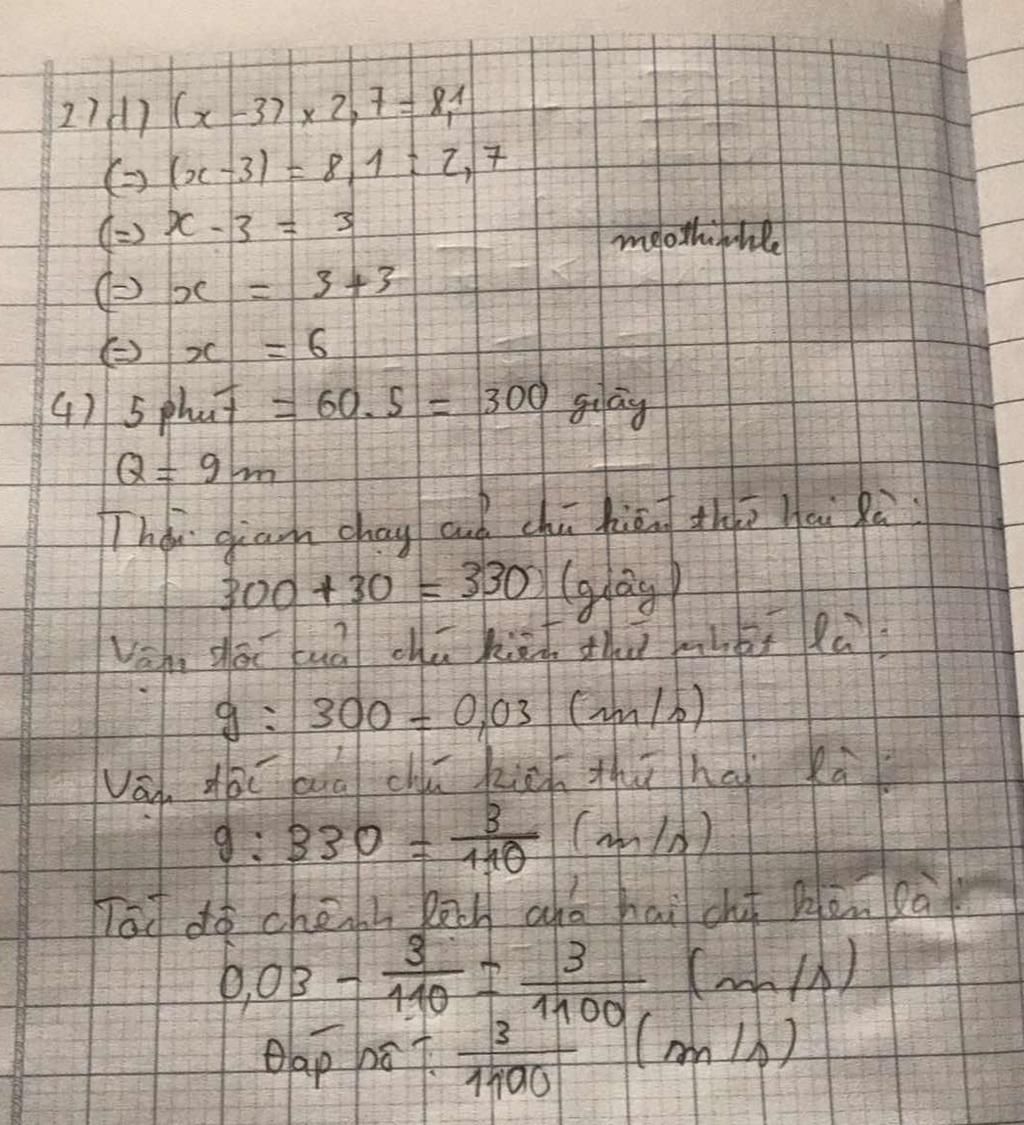 2) d) (x - 3) x 2,7 = 8,1
(=) (x - 3) = 8,1 : 2,7
(=) x - 3 = 3
meothinhle
(=) x = 3 + 3
(=) x = 6
4) 5 phút = 60.5 = 300 giây
Q = 9m
Thời gian chạy của chú kiến thứ hai là:
300 + 30 = 330 (giây)
Vận tốc của chú kiến thứ nhất là:
9 : 300 = 0,03 (m/s)
Vận tốc của chú kiến thứ hai là:
9 : 330 = 3/110 (m/s)
Tốc độ chênh lệch của hai chú kiến là:
0,03 - 3/110 = 3/1100 (m/s)
Đáp số: 3/1100 (m/s)